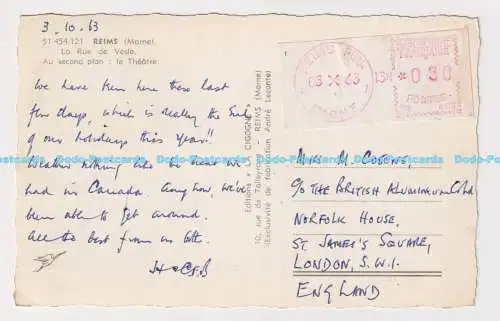 3.10.63
51 454.121 REIMS (Marne)
La Rue de Vesle.
Au second plan : le Théâtre.
We have been here these last
few days, which is really the end
of our holidays this year!
Weather nothing like the heat we
had in Canada Anyhow, we've
been able to get around.
All the best from us both.
Editions " CIGOGNE "
10, rue de Talleyrand - REIMS (Marne)
(Exclusivité de fabrication André Leconte)
REIMS
03 X 63
MARNE
0 30
POSTES
Miss M.
C/o THE BRITISH ALUMINIUM Co Ltd
NORFOLK HOUSE,
ST. JAMES'S SQUARE,
LONDON, S.W.1.
ENGLAND
Dodo-Postcards